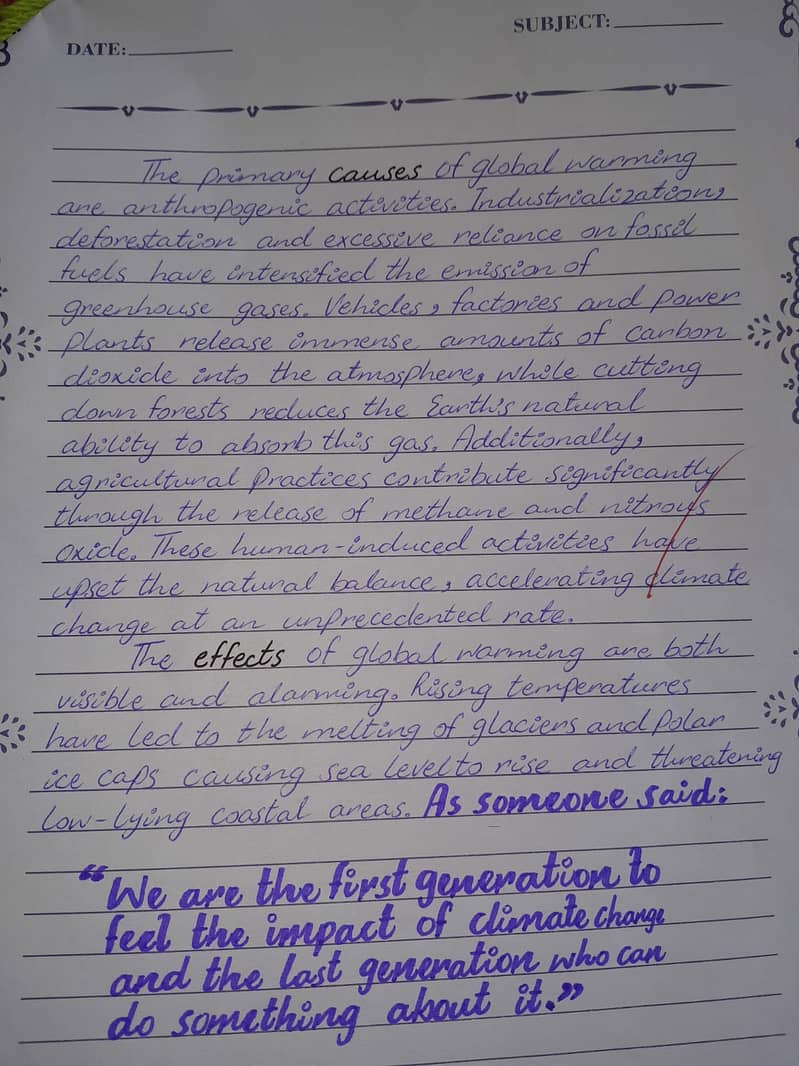 SUBJECT:
DATE:
The primary causes of global warming
are anthropogenic activities. Industrialization,
deforestation and excessive reliance on fossil
fuels have intensified the emission of
greenhouse gases. Vehicles, factories and power
plants release immense amounts of carbon
dioxide into the atmosphere, while cutting
down forests reduces the Earth's natural
ability to absorb this gas. Additionally,
agricultural practices contribute significantly
through the release of methane and nitrous
oxide. These human-induced activities have
upset the natural balance, accelerating climate
change at an unprecedented rate.
The effects of global warming are both
visible and alarming. Rising temperatures
have led to the melting of glaciers and polar
ice caps causing sea level to rise and threatening
low-lying coastal areas. As someone said:
“We are the first generation to
feel the impact of climate change
and the last generation who can
do something about it.”